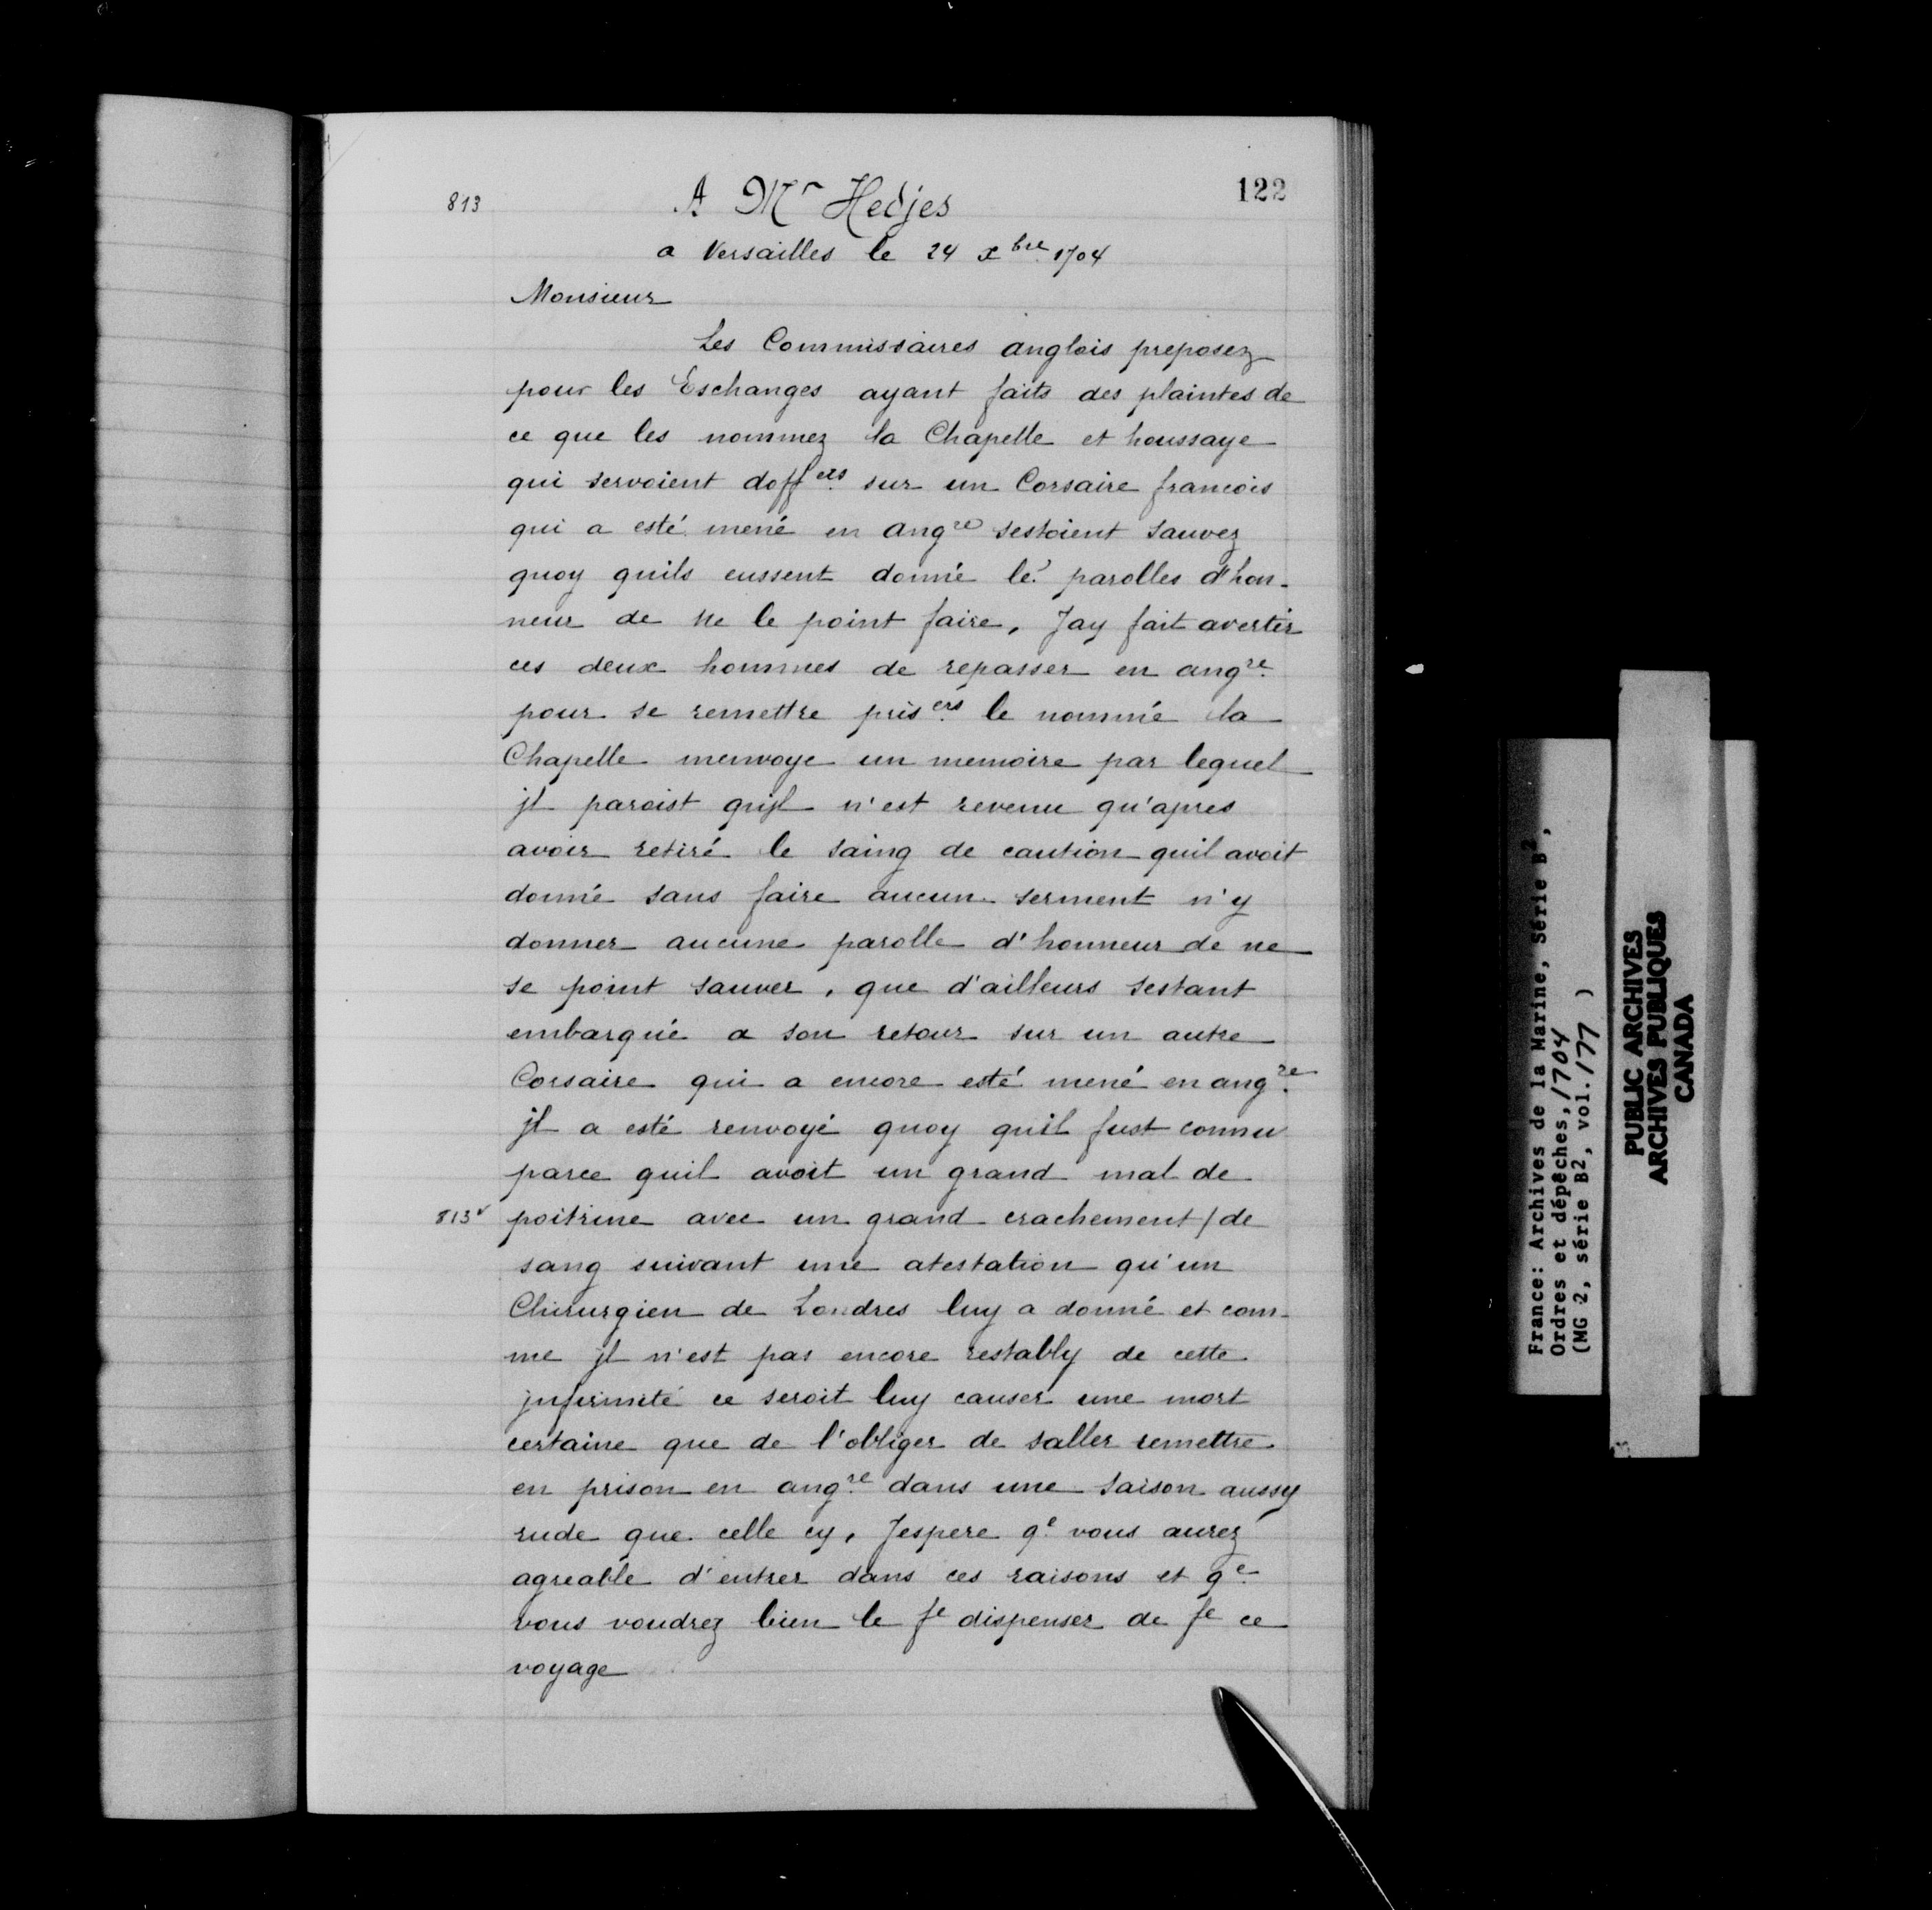 813
A Mr Hedjes
122
a Versailles le 24 xbre 1704
Monsieur
Les Commissaires anglois preposez
pour les Eschanges ayant faits des plaintes de
ce que les nommez la Chapelle et houssaye
qui servoient doffers sur un Corsaire francois
qui a esté mené en angre sestoient sauvez
quoy quils eussent donné le? parolles d'hon-
neur de ne le point faire, Jay fait avertir
ces deux hommes de repasser en angre
pour se remettre prisers le nommé la
Chapelle menvoye un memoire par lequel
jl paroist qujl n'est revenu qu'apres
avoir retiré le saing de caution quil avoit
donné sans faire aucun serment n'y
donner aucune parolle d'honneur de ne
se point sauver, que d'ailleurs sestant
embarqué a son retour sur un autre
Corsaire qui a encore esté mené en angre
jl a esté renvoyé quoy quil fust connu
parce quil avoit un grand mal de
813v poitrine avec un grand crachement / de
sang suivant une atestation qu'un
Chirurgien de Londres luy a donné et com-
me jl n'est pas encore restably de cette
jnfirmité ce seroit luy causer une mort
certaine que de l'obliger de saller remettre
en prison en angre dans une saison aussy
rude que celle cy, Jespere qe vous aurez
agreable d'entrer dans ces raisons et qe
vous voudrez bien le fe dispenser de fe ce
voyage
France: Archives de la Marine, Série B2,
Ordres et dépêches, 1704
(MG 2, série B2, vol. 177 )
PUBLIC ARCHIVES
ARCHIVES PUBLIQUES
CANADA